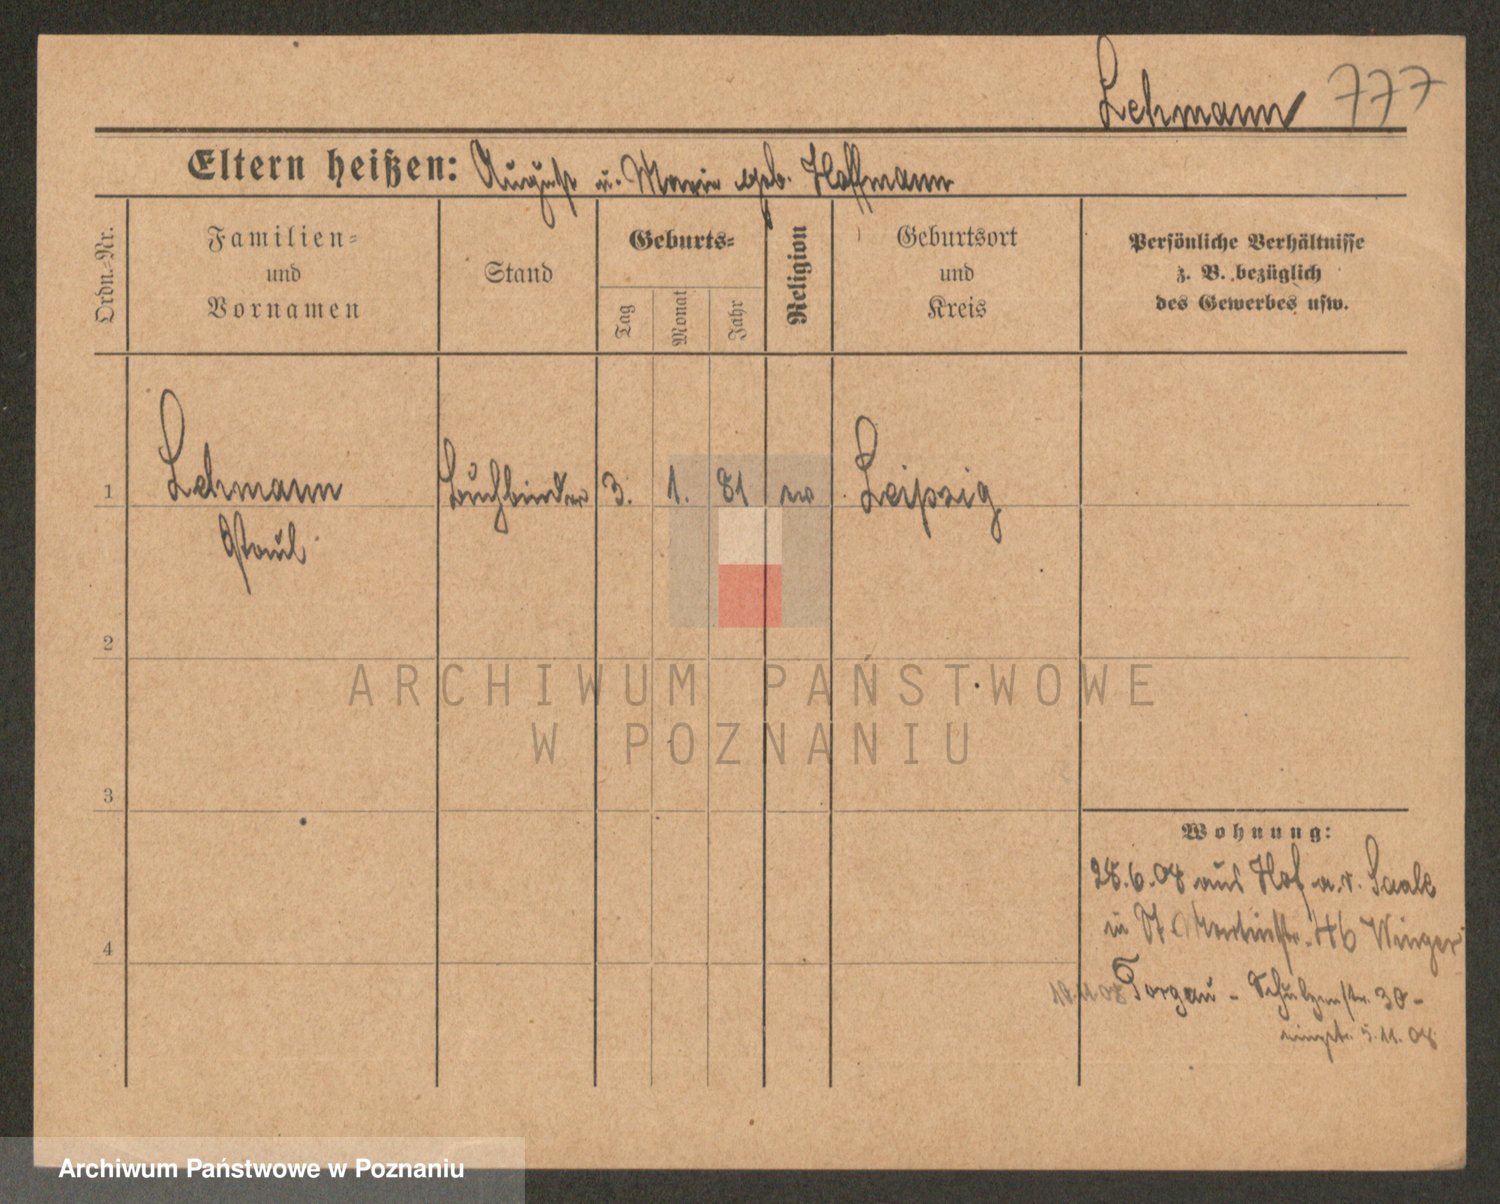 Lehmann 777
Eltern heißen: August u. Marie geb. Hoffmann
Ordn.-Nr.
Familien-
und
Vornamen
Stand
Geburts-
Tag
Monat
Jahr
Religion
Geburtsort
und
Kreis
Persönliche Verhältnisse
z. B. bezüglich
des Gewerbes usw.
1 Lehmann Buchbinder 3. 1. 81 ev Leipzig
Paul
2
3
4
Wohnung:
28.6.08 aus Hof a. d. Saale
in St Martinstr. 46 Winger
10.11.08 Torgau - Schulzenstr. 30 -
5.11.08
ARCHIWUM PAŃSTWOWE
W POZNANIU
Archiwum Państwowe w Poznaniu